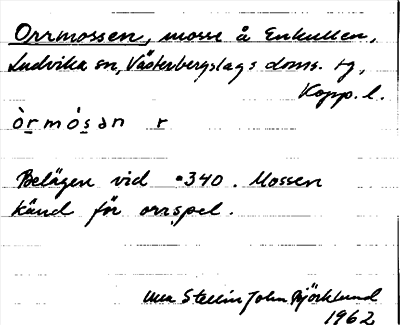 Orrmossen, mosse å Enkullen,
Ludvika sn, Västerbergslags doms. tg,
Kopp. l.
òrmósən r
Belägen vid °340. Mossen
känd för orrspel.
Stellin John Björklund
1962